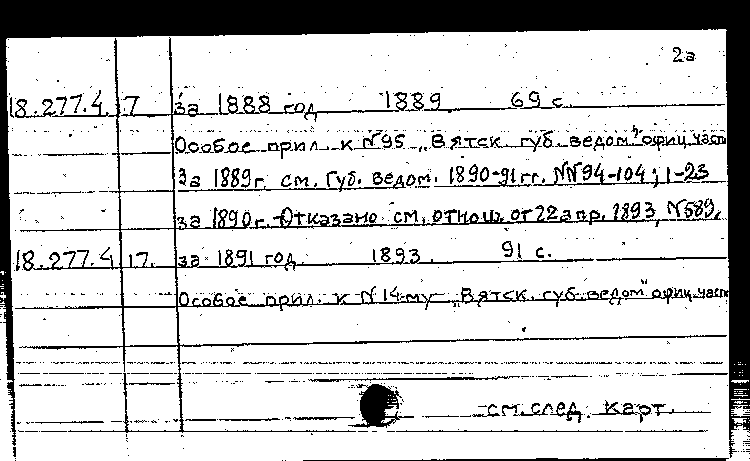 2а
18.277.4. 7 за 1888 год 1889 69 с.
Особое прил. к №95 „Вятск. губ. ведом", офиц. част
За 1889г. см. Губ. ведом. 1890-91гг. NN94-104; 1-23
за 1890г. - Отказано см. отнош. от 22 апр. 1893, N589.
18.277.4 17. за 1891 год 1893. 91 с.
Особое прил. к N 14-му „Вятск. губ. ведом" офиц. част
см. след. карт.